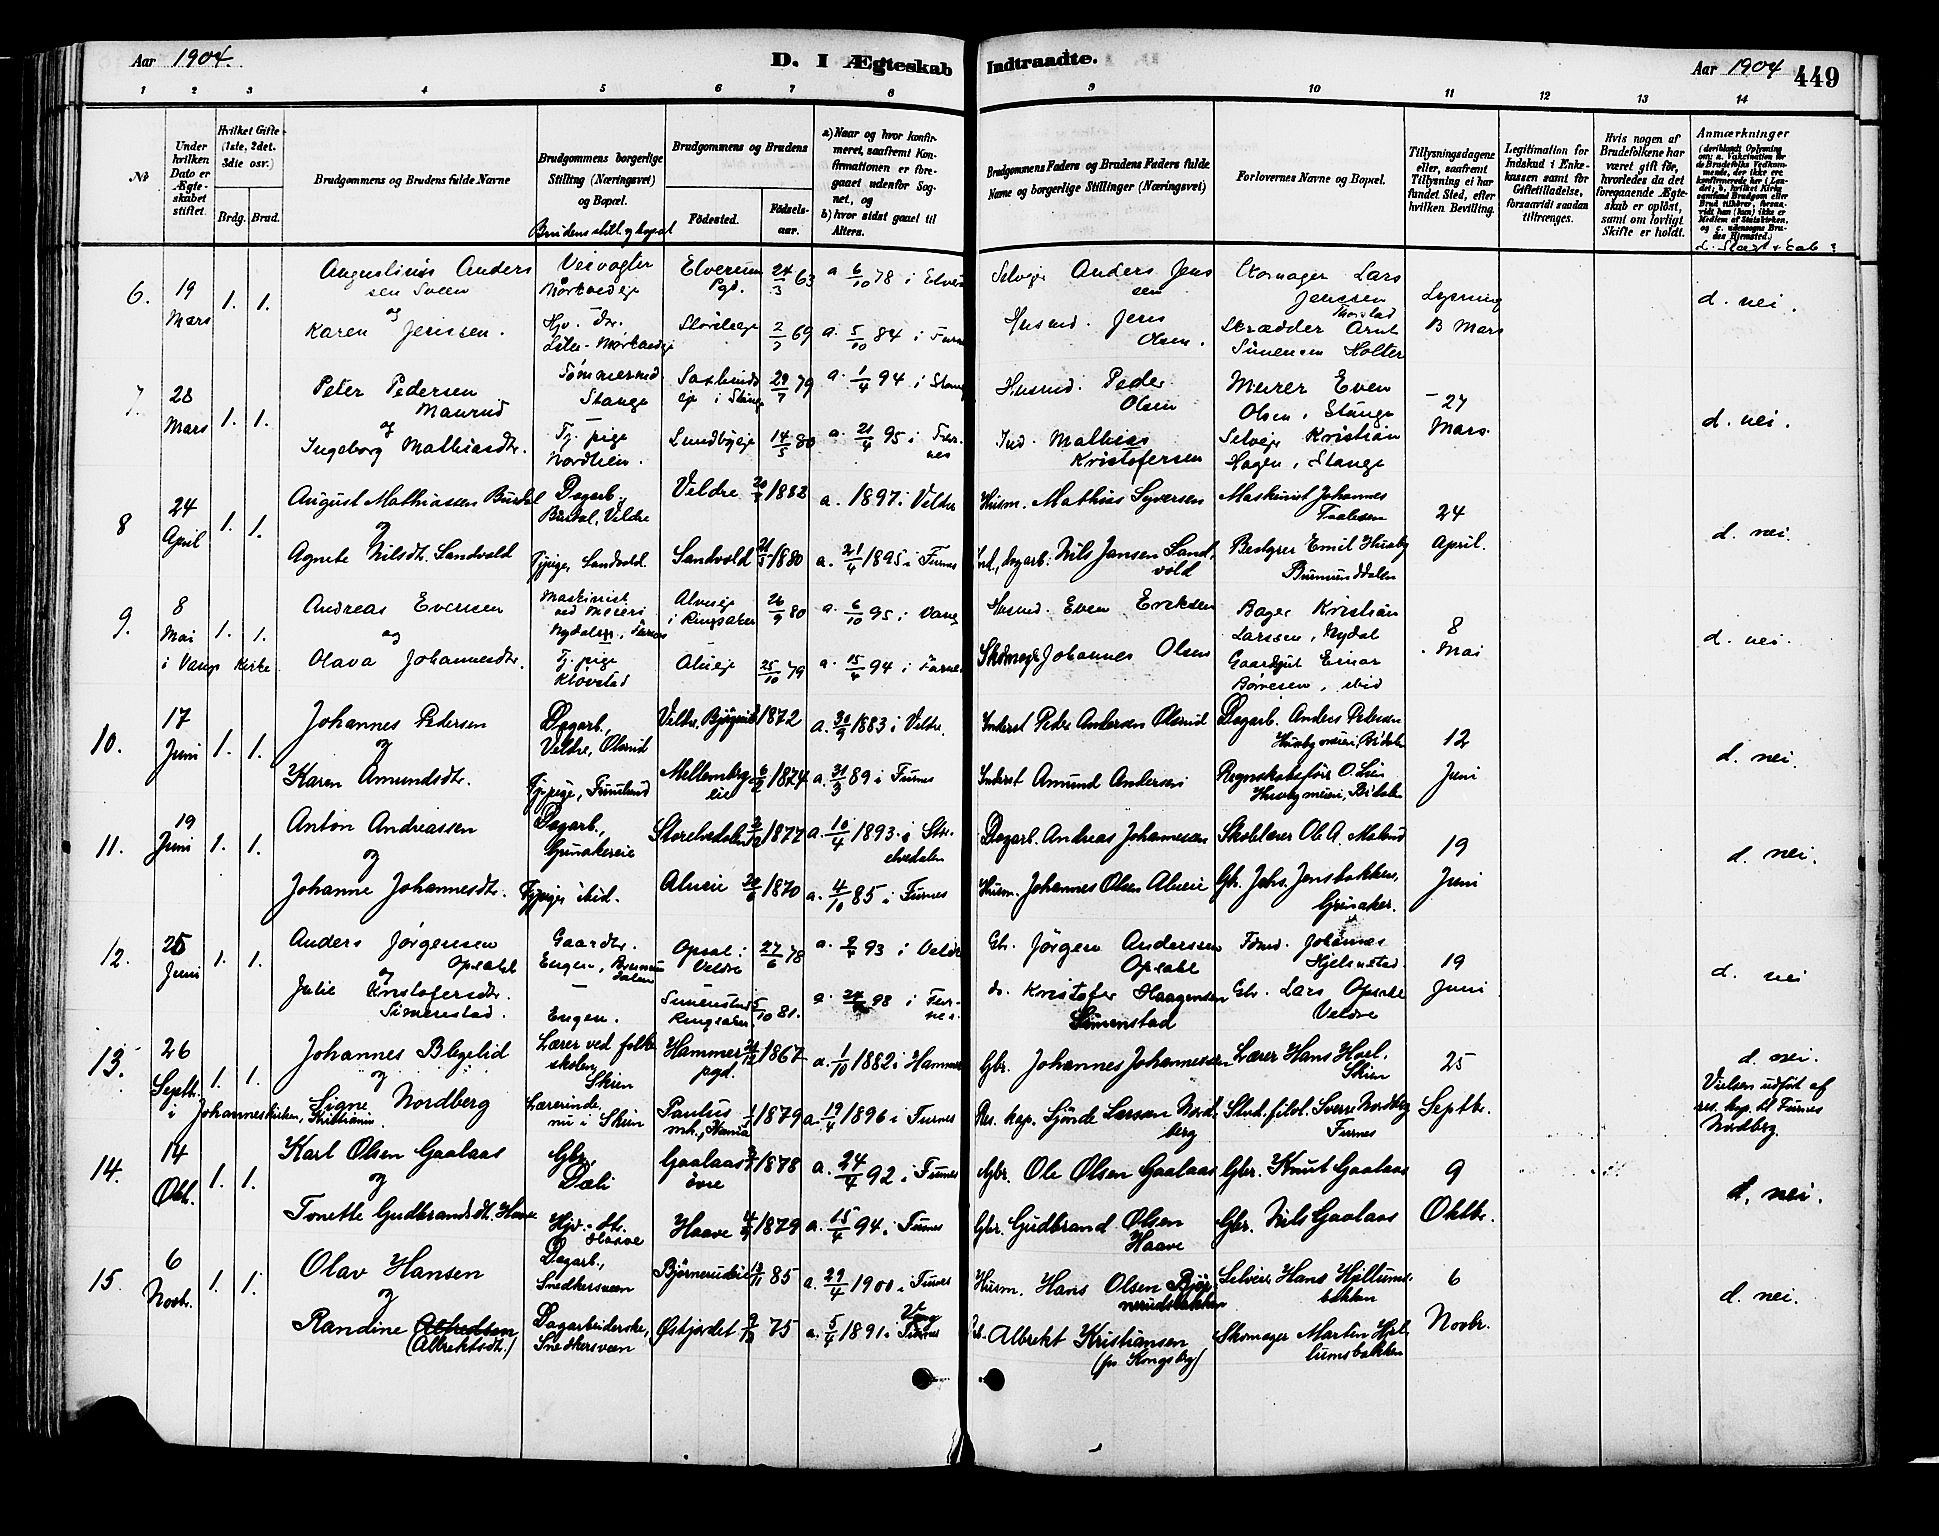 Aar 1904.
D. I Ægteskab Indtraadte.
Aar 1904 449
1 2 3 4 5 6 7 8 9 10 11 12 13 14
No
Under hvilken Dato er Ægteskabet stiftet.
Hvilket Gifte (1ste, 2det. 3die osv.)
Brdg. Brud.
Brudgommens og Brudens fulde Navne
Brudgommens borgerlige Stilling (Næringsvei) og Bopæl.
Brudens still. og bopæl
Brudgommens og Brudens
Fødested. Fødselsaar.
a) Naar og hvor konfirmeret, saafremt Konfirmationen er foregaaet udenfor Sognet, og
b) hvor sidst gaaet til Alters.
Brudgommens Faders og Brudens Faders fulde Navne og borgerlige Stillinger (Næringsvei)
Forlovernes Navne og Bopæl.
Tillysningsdagene eller, saafremt Tillysning ei har fundet Sted, efter hvilken Bevilling.
Legitimation for Indskud i Enkekassen samt for Giftetilladelse, forsaavidt saadan tiltrænges.
Hvis nogen af Brudefolkene har været gift før, hvorledes da det foregaaende Ægteskab er opløst, samt om lovligt Skifte er holdt.
Anmærkninger
6. 19 Mars 1. 1.
Augustinus Andersen Sveen
og
Karen Jenssen.
Veivogter Mørkvedeje
Elverum Pgd. 24/3 63 a 6/10 78 i Elver
Størilseje 2/7 69 a. 5/10 84 i Furn
Selvejer Anders Jenssen
Husmd. Jens Olsen.
Skomager Lars Jenssen
Skrædder Arnt Simensen Holter
Lysning 13 Mars
d. nei.
7. 28 Mars 1. 1.
Peter Pedersen Maurud
og
Ingeborg Mathiasdtr.
Tømmermd Stange
Tj. pige Nordlien.
29/7 79 a. 1/4 94 i Stang
Lundbyeje 14/5 80 a. 21/4 95 i Furnes
Husmd. Peder Olsen
Ind. Mathias Kristofersen
Murer Even Olsen, Stange
Selvejer Kristian Hagen, Stange
27 Mars.
d. nei.
8 24 April 1. 1.
August Mathiassen Burdal
og
Agnete Nilsdt. Sandvold
Dagarb. Burdal, Veldre
Tjpige, Sandvold.
Veldre 1882 a. 1897 i Veldre
Sandvold 21/5 1880 a. 21/4 1895 i Furnes
Husm. Mathias Syversen
Ind., dagarb. Nils Jansen Sandvold
Maskinist Johannes Paalesen
Bestyrer Emil Huseby Brumunddalen
24 April.
d. nei.
9. 8 Mai 1. 1.
i Vangs Kirke
Andreas Evensen
og
Olava Johannesdtr.
Maskinist ved Meieri Nydaleje, Furnes
Tj. pige Klovstad
Alvueje i Ringsaker 26/9 80 a. 6/10 95 i Vang
Alueje 25/10 79 a. 15/4 94 i Furnes
Husmd. Even Eriksen
Skomager Johannes Olsen
Bager Kristian Larssen, Nydal
Gaardgut Einar Børresen, ibid
8 Mai
d. nei.
10. 17 Juni 1. 1.
Johannes Pedersen
og
Karen Amundsdtr.
Dagarb., Veldre, Olsrud
Tjpige, Fuulund
Veldre, 1872 a. 30/9 1883 i Veldre.
Mellemberg eie 1874 a. 31/3 89 i Furnes
Inderst Peder Andersen Olsrud
Inderst Amund Andersen
Dagarb. Anders Pedersen Husby meieri, B.dalen
Regnskabsfører O. Lien Husby meieri, B.dalen
12 Juni
d. nei.
11. 19 Juni 1. 1.
Anton Andreassen
og
Johanne Johannesdtr.
Dagarb., Grinakereie
Tjpige ibid.
Storelvedalen 1877 a. 10/4 1893 i Storelvedalen
Alueie 1870 a. 4/10 85 i Furnes
Dagarb. Andreas Johannesen
Husm. Johannes Olsen Alueie
Skolelærer Ole A. Malud
Gbr. Johs. Jensbakken, Grinaker.
19 Juni
d. nei.
12. 25 Juni 1. 1.
Anders Jørgensen Opsahl
og
Julie Kristofersdtr. Simenstad.
Gaardbr. Engen, Brumunddalen
Engen.
Opsal i Veldre 27/6 78 a. 2/4 93 i Veldre
Simenstad Ringsaker 5/10 81. a. 24/4 98 i Furnes.
Gbr. Jørgen Anderssen Opsahl
do. Kristofer Haagensen Simenstad
Fdmd. Johannes Hjelmstad.
Gbr. Lars Opsahl Veldre
19 Juni
d. nei
13. 26 Septb. 1. 1.
i Johanneskirken, Kristiania.
Johannes Blegelid
og
Signe Nordberg
Lærer ved folkeskolen, Skien
Lærerinde nu i Skien
Hammer pgd. 1867 a. 1/10 1882 i Hammer
Paulus mh., Kania 1/1 1879 a. 19/4 1896 i Furnes
Gbr. Johannes Johannessen
Res. kap. Sjönde Larssen Nordberg
Lærer Hans Hoel. Skien
Stud. filol. Sverre Nordberg Furnes
25 Septbr.
d. nei.
Vielsen udført af res. kap. til Furnes Nordberg.
14. 14 Okt. 1. 1.
Karl Olsen Gaalaas
og
Tonette Gudbrandsdt. Haave
Gbr., Dæli
Hjv. dtr. Haave
Gaalaas øvre 1878 a. 24/4 92 i Furnes
Haave 1879 a. 15/4 94 i Furnes
Gbr. Ole Olsen Gaalaas
Gbr. Gudbrand Olsen Haave
Gbr. Knut Gaalaas
Gbr. Nils Gaalaas
9 Oktbr.
d. nei.
15. 6 Novbr. 1. 1.
Olav Hansen
og
Randine Alfredsen (Albrektsdt.)
Dagarb., Snedkersveen
Dagarbeiderske, Snedkersveen
Bjørnerudeie 85 a. 29/4 1900 i Furnes
Østjordet 75 a. 5/4 1891 i Furnes Vang
Husm. Hans Olsen Bjørnerudsbakken
Albrekt Kristiansen (pr Kongsby)
Selveier Hans Hjellumsbakken
Skomager Martin Hjellumsbakken
6 Novbr.
d. nei.